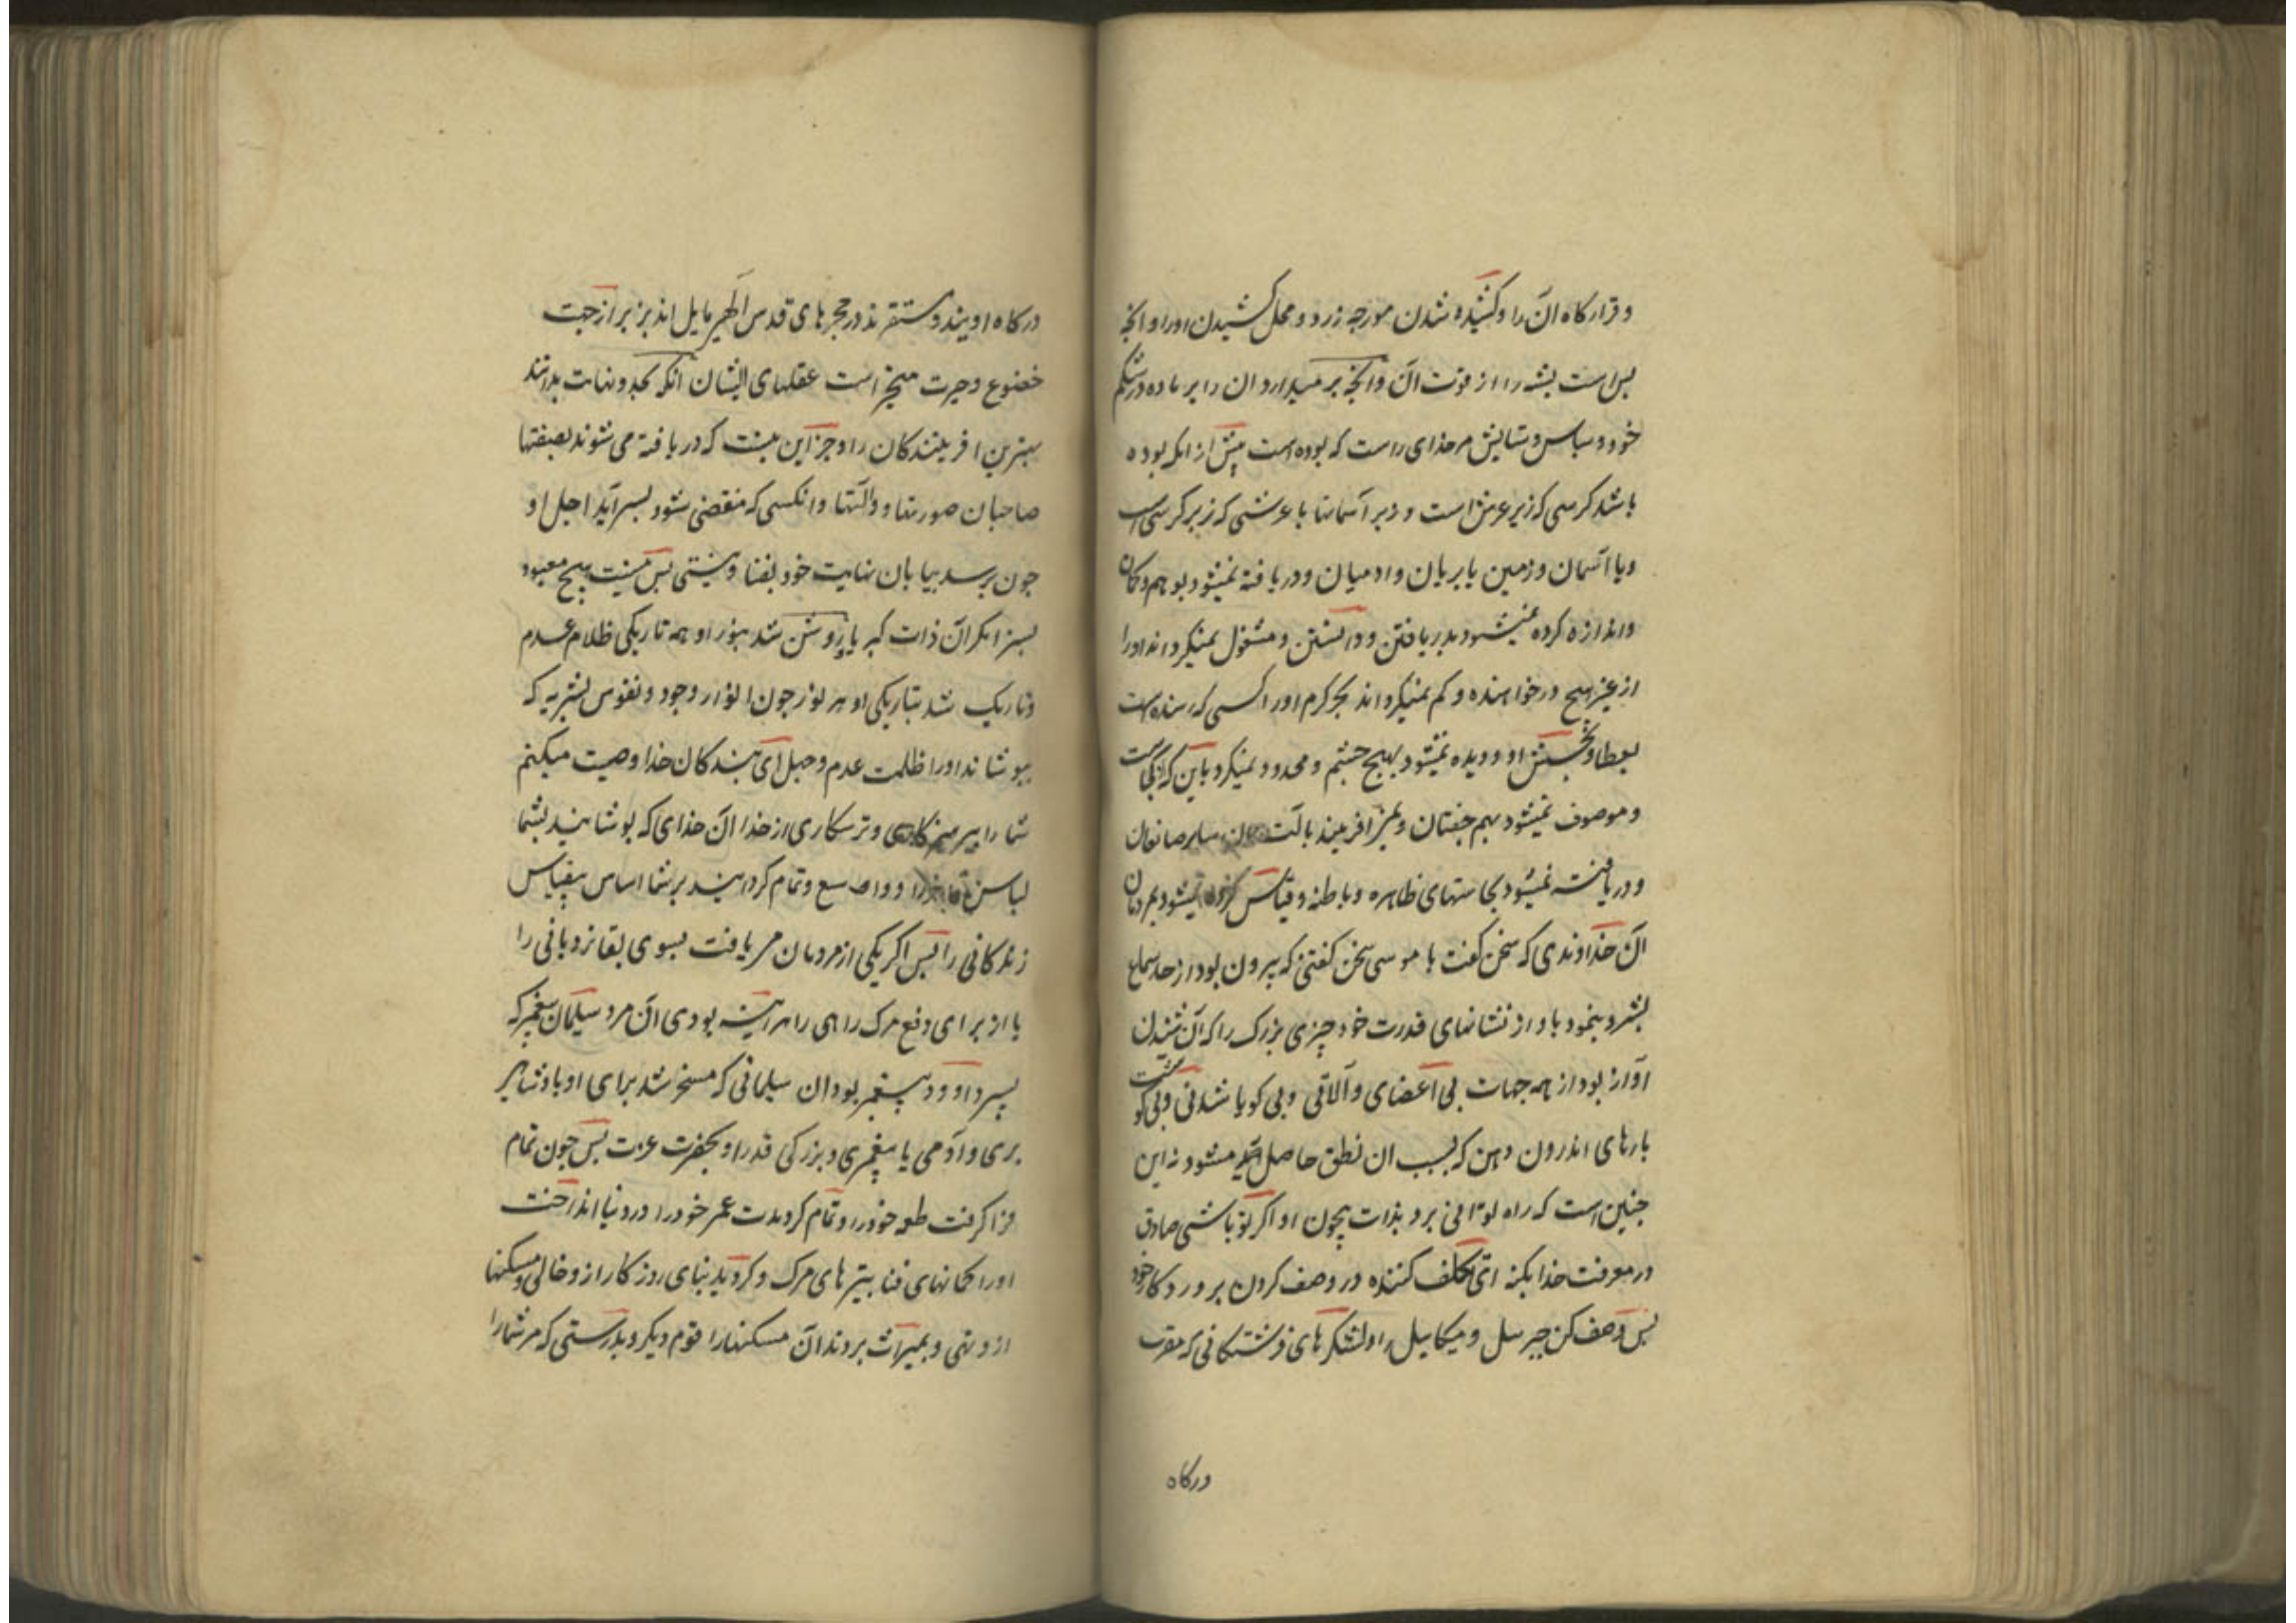 و قرارگاه آن را و کشیده شدن مورچه زرد و محل کشیدن او را و انچه
بس است پشه را از قوت آن و انچه بر میدارد ان را بر ماده در شکم
خود و سپاس و ستایش مر خدای راست که بوده است پیش از انکه بوده
باشد کرسی که زیر عرش است و دبر آسمانها یا عرشی که زبر کرسی است
و یا آسمان و زمین یا پریان و ادمیان و دریافته نمیشود بوهم و کمان
و اندازه کرده نمیشود بدریافتن و دانستن و مشغول نمیکرداند او را
از غیر هیچ درخواهنده و کم نمیکرداند بحر کرم او را کسی که رسنده است
بعطا و بخشش او و دیده نمیشود بهیچ چشم و محدود نمیکردد باین که کجاست
و موصوف نمیشود بهم جفتان و نمی افریند بالت سایر صانعان
و دریافته نمیشود بحاستهای ظاهره و باطنه و قیاس کرده نمیشود بمردمان
آن خداوندی که سخن گفت با موسی سخن کفتنی که بیرون بود از حد سماع
بشر و بنمود باو از نشانهای قدرت خود چیزی بزرک را که آن شنیدن
آواز بود از همه جهات بی اعضای و آلاتی و بی کویا شدنی و بی کوشت
بارهای اندرون دهن که بسبب ان نطق حاصل میشود نه این
چنین است که راه توانی برد بذات بیچون او اکر تو باشی صادق
در معرفت خدا بکنه ای تکلف کننده در وصف کردن پروردکار خود
پس وصف کن جبرئیل و میکاییل را و لشکرهای فرشتکانی که مقرب
درکاه
درکاه اویند و مستقرند در حجرهای قدس الهی مایل اند بزیر از جهت
خضوع و حیرت متحیر است عقلهای ایشان آنکه بحد و نهایت بدانند
بهترین افرینندکان را و جز این نیست که دریافته می شوند بصفتها
صاحبان صورتها و آلتها و انکسی که منقضی شود بسر آید اجل او
چون برسد بپایان نهایت خود بفنا و نیستی پس نیست هیچ معبود
بسزا مکر آن ذات کبریا روشن شد بنور او همه تاریکی ظلام عدم
و تاریک شد بتاریکی او هر نور چون انوار وجود و نفوس بشریه که
بپوشاند او را ظلمت عدم و جهل ای بندکان خدا وصیت میکنم
شما را بپرهیزکاری و ترسکاری از خدا آن خدای که پوشانید بشما
لباس فاخر را و واسع و تمام کردانید بر شما اساس بیقیاس
زندکانی را پس اکر یکی از مردمان می یافت بسوی بقا نردبانی را
یا از برای دفع مرک راهی را هراینه بودی آن مرد سلیمان پیغمبر که
پسر داوود پیغمبر بود ان سلیمانی که مسخر شد برای او پادشاهی
پری و آدمی با پیغمبری و بزرکی قدر او بحضرت عزت پس چون تمام
فرا کرفت طعمه خود را و تمام کرد مدت عمر خود را در دنیا انداخت
او را کمانهای فنا بتیرهای مرک و کردید بنای روزکار از و خالی و مسکنها
از و تهی و بمیراث بردند آن مسکنها را قوم دیکر و بدرستی که مر شما را